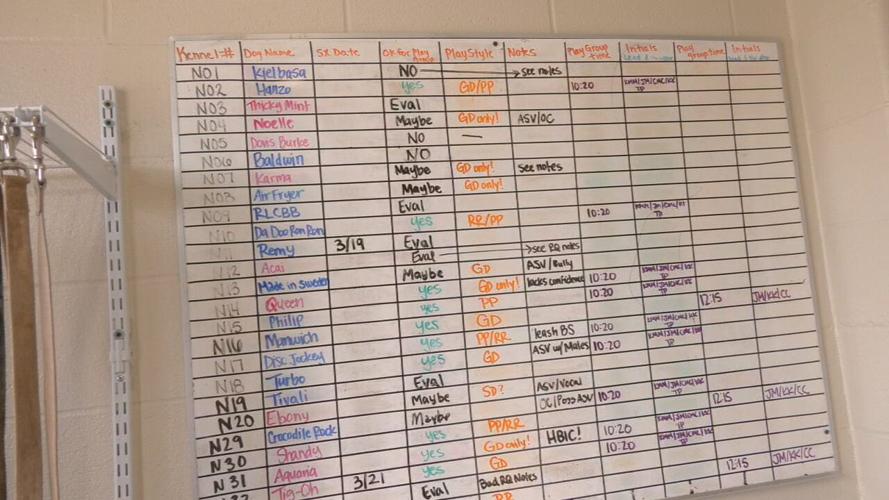 Kennel# Dog Name Sx Date OK for Play Group Play Style Notes Play Group time Initials Play group time Initials
N01 Kielbasa NO → see notes
N02 Hanzo yes GD/PP 10:20
N03 Thicky Mint Eval
N04 Noelle Maybe GD only! ASV/OC
N05 Davis Burke NO —
N06 Baldwin NO
N07 Karma Maybe GD only! see notes
N08 Air Fryer Maybe GD only!
N09 RLCBB Eval
N10 Da Doo Ron Ron yes RR/PP 10:20
N11 Remy 3/19 Eval
N12 Acai Eval → see RQ notes
N13 Made in Sweden Maybe GD ASV/Bully
N14 Queen yes GD only! lacks confidence 10:20
N15 Philip yes PP 10:20
N16 Manwich yes GD 12:15 JM/KK/CC
N17 Disc Jockey yes PP/RR leash BS 10:20
N18 Turbo yes GD ASV w/Males 10:20
N19 Tivali Eval
N20 Ebony Maybe SD? ASV/Vocal
N29 Crocodile Rock Maybe OC/Poss ASV 10:20 12:15 JM/KK/CC
N30 Shandy yes PP/RR
N31 Aquaria yes GD only! HBIC! 10:20
N32 Tig-Oh 3/21 yes GD 10:20
Eval Bad RQ Notes 12:15 JM/KK/CC